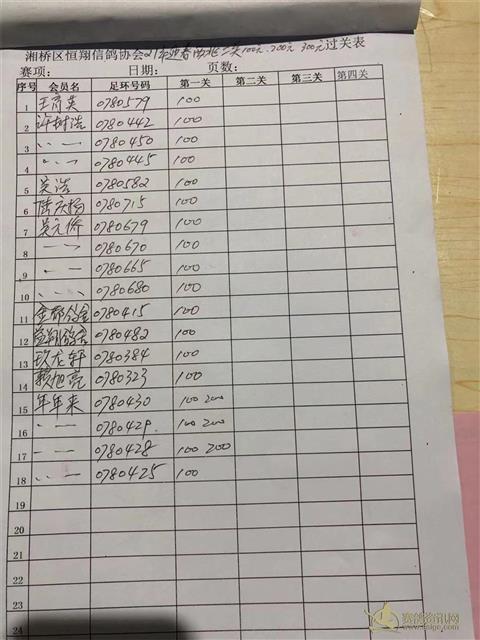 湘桥区恒翔信鸽协会21年迎春西北二关100元.200元 300元过关表
赛项: 日期: 页数:
序号 会员名 足环号码 第一关 第二关 第三关 第四关
1 王育英 0780579 100
2 许树浩 0780442 100
3 〃 0780450 100
4 〃 0780445 100
5 吴浩 0780582 100
6 陆庆扬 0780715 100
7 吴元侨 0780679 100
8 〃 0780670 100
9 〃 0780665 100
10 〃 0780680 100
11 金都鸽舍 0780415 100
12 壹翔鸽舍 0780482 100
13 玖龙轩 0780384 100
14 赖旭亮 0780323 100
15 年年来 0780430 100 200
16 〃 0780429 100 200
17 〃 0780428 100 200
18 〃 0780425 100
19
20
21
22
23
24
赛鸽资讯网